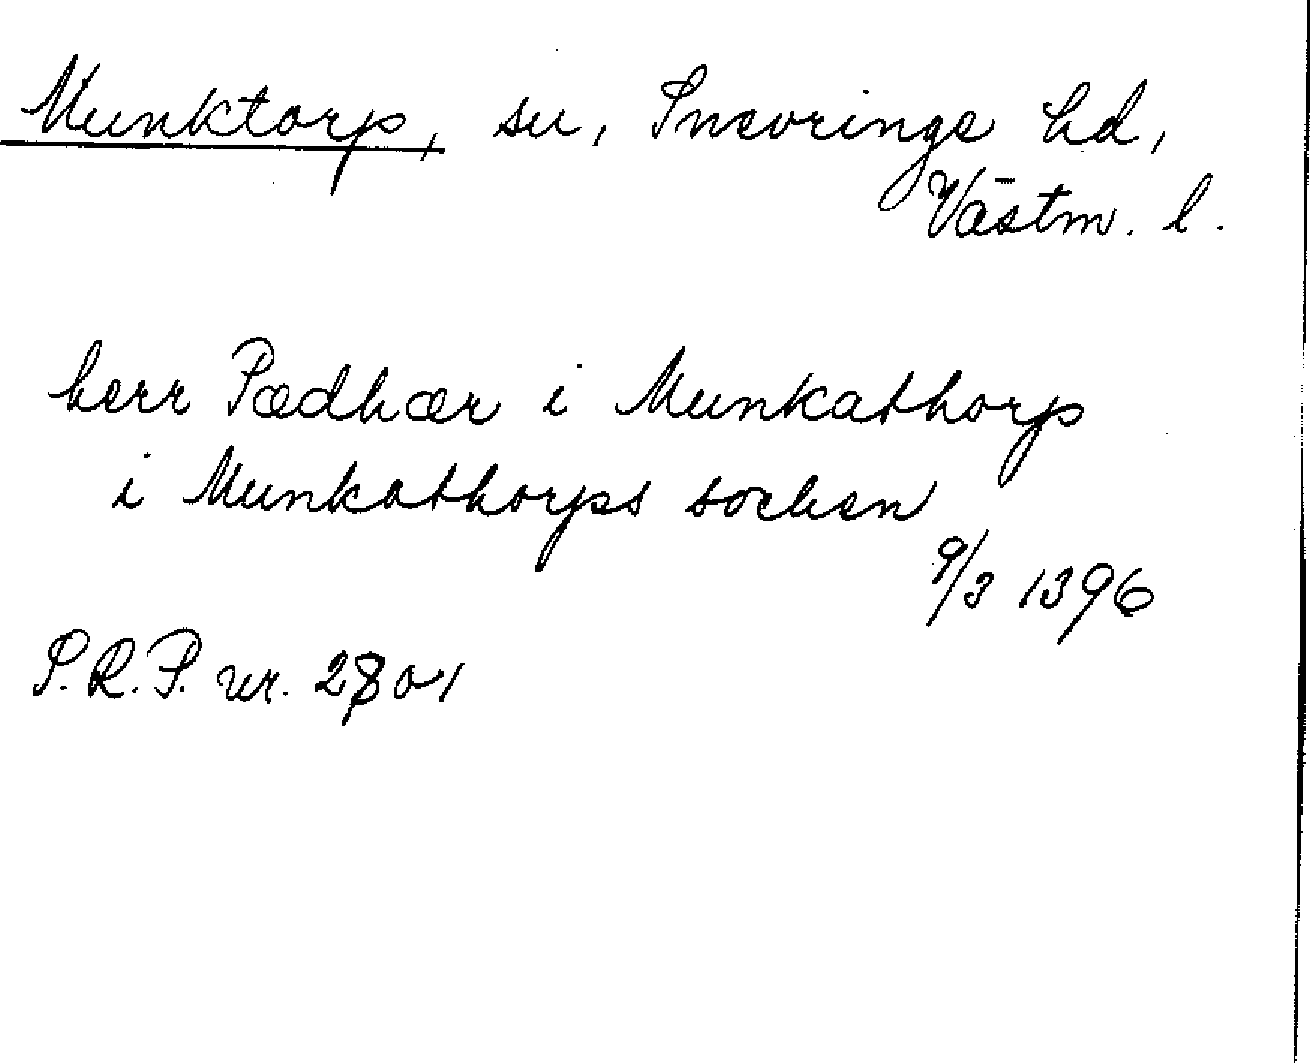 Munktorp, sn, Snevringe hd,
Västm. l.
herr Pædhær i Munkathorp
i Munkathorps sochen
9/3 1396
S.R.P. nr. 2801